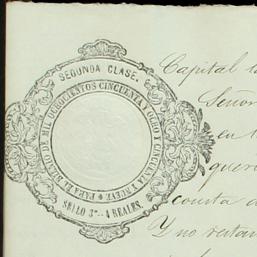 SEGUNDA CLASE.
PARA EL BIENIO DE MIL OCHOCIENTOS CINCUENTA Y OCHO Y CINCUENTA Y NUEVE
SELLO 3º - 4 REALES.
Capital
Señor
en
quer
cuenta d
Y no